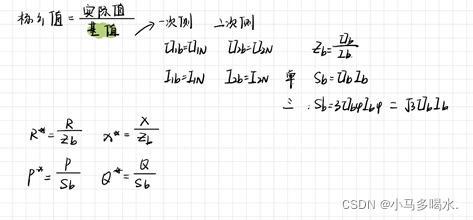 标幺值 = 实际值 / 基值 → 一次侧 二次侧
U1b=U1N U2b=U2N Zb=Ub/Ib
I1b=I1N I2b=I2N 单 Sb=UbIb
三 : Sb=3UbφIbφ = √3UbIb
R*=R/Zb X*=X/Zb
P*=P/Sb Q*=Q/Sb
CSDN @小马多喝水.